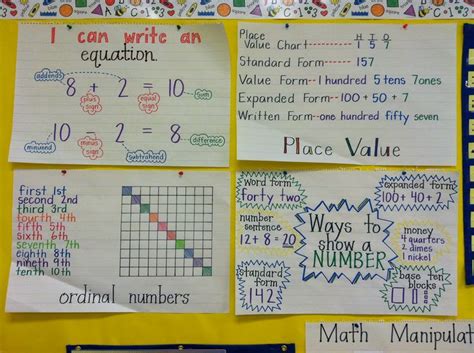 I can write an
equation.
addends
8 + 2 = 10
sum
plus sign
equal sign
10 - 2 = 8
difference
minuend
minus sign
subtrahend
Place
Value Chart
H T O
1 5 7
Standard Form 157
Value Form 1 hundred 5 tens 7 ones
Expanded Form 100 + 50 + 7
Written Form one hundred fifty seven
Place Value
first 1st
second 2nd
third 3rd
fourth 4th
fifth 5th
sixth 6th
seventh 7th
eighth 8th
nineth 9th
tenth 10th
ordinal numbers
word form
forty two
expanded form
100 + 40 + 2
number
sentence
12 + 8 = 20
Ways to
show a
NUMBER
money
4 quarters
2 dimes
1 nickel
standard
form
142
base ten
blocks
Math Manipulat